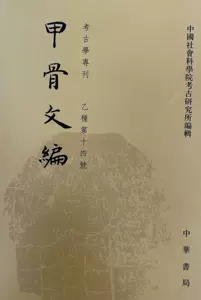 中國社會科學院考古研究所編輯
考古學專刊 乙種第十四號
甲骨文編
中華書局